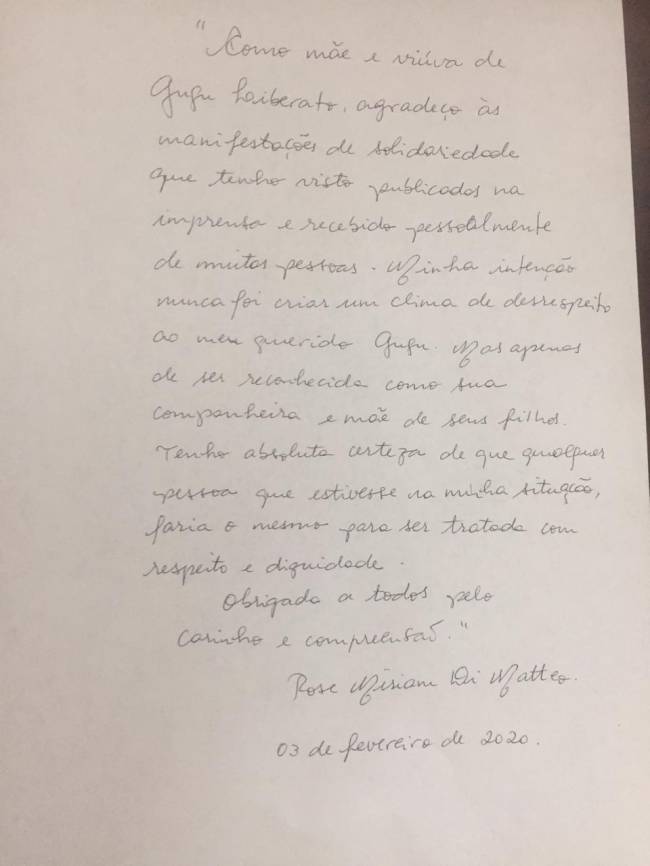 "Como mãe e viúva de
Gugu Laiberato, agradeço às
manifestações de solidariedade
que tenho visto publicados na
imprensa e recebido pessoalmente
de muitas pessoas. Minha intenção
nunca foi criar um clima de desrespeito
ao meu querido Gugu. Mas apenas
de ser reconhecida como sua
companheira e mãe de seus filhos.
Tenho absoluta certeza de que qualquer
pessoa que estivesse na minha situação,
faria o mesmo para ser tratada com
respeito e dignidade.
Obrigada a todos pelo
carinho e compreensão."
Rose Miriam Di Matteo.
03 de fevereiro de 2020.